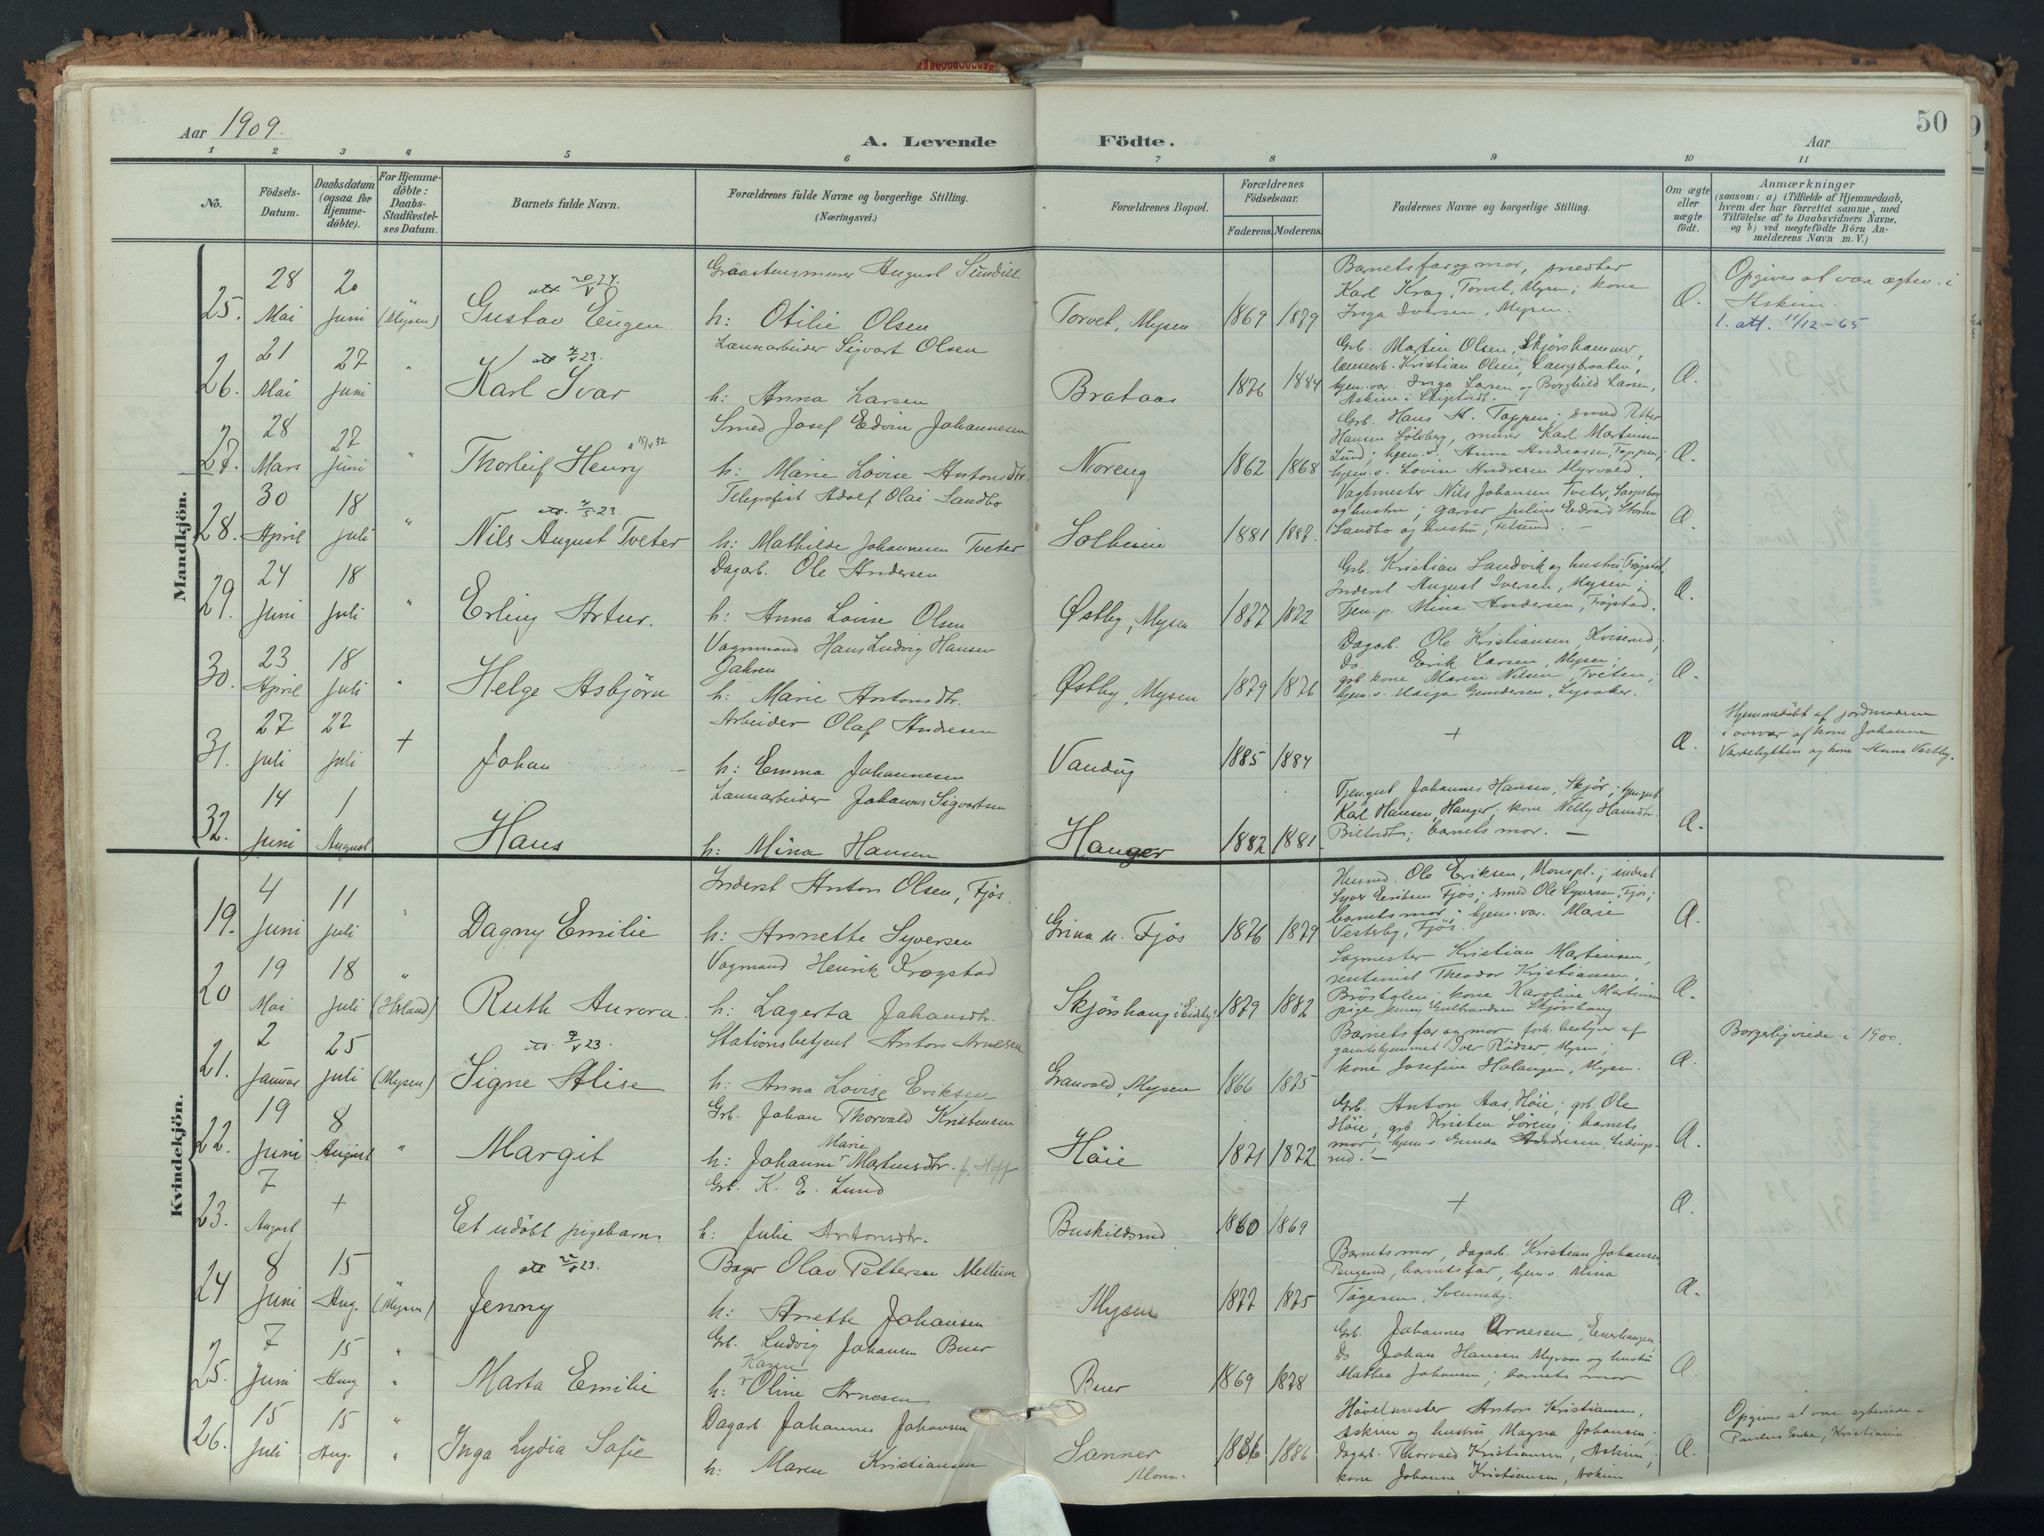 Aar 1909.
A. Levende
Födte.
Aar
50
1 2 3 4 5 6 7 8 9 10 11
No.
Födsels-
Datum.
Daabsdatum
(ogsaa for
Hjemme-
döbte).
For Hjemme-
döbte:
Daabs-
Stadfæstel-
ses Datum.
Barnets fulde Navn.
Forældrenes fulde Navne og borgerlige Stilling.
(Næringsvei.)
Forældrenes Bopæl.
Forældrenes
Födselsaar.
Faderens. Moderens.
Faddernes Navne og borgerlige Stilling.
Om ægte
eller
uægte
födt.
Anmærkninger
(saasom: a) i Tilfælde af Hjemmedaab,
hvem der har forrettet samme, med
Tilföielse af to Daabsvidners Navne,
og b) ved uægtefödte Börn An-
melderens Navn m. V.)
Mandkjön.
25. 28 Mai 20 Juni (Mysen) Gustav Eugen
h: Otilie Olsen
Torvet, Mysen 1869 1879
Barnets far og mor, snedker
Karl Krag, Torvet, Mysen; kone
Inga Iversen, Mysen.
Æ.
Opgives at være ægtev. i
Askim.
1. att. 11/12-65
26. 21 Mai 27 Juni " Karl Ivar
Sigvart Olsen
h: Anna Larsen
Brataas 1876 1884
Grb. Martin Olsen, Skjørshammer,
Kristian Olsen, Langbraaten,
Inga Larsen og Borghild Larsen,
Æ.
27. 28 Mars 27 Juni " Thorleif Henry
Smed Josef Edvin Johannesen
h: Marie Lovise Antonsdtr.
Noreng 1862 1868
Grb. Hans A. Toppen; smed Petter
Hansen Sølvberg, murer Karl Martinsen
Lund; hjem. v. Anna Andreassen, Toppen,
hjem. v. Lovise Andresen Myrvold
Æ.
28. 30 April 18 Juli " Nils August Tveter
Telegrafist Adolf Olai Sandbo
h: Mathilde Johannesen Tveter
Solheim 1881 1882.
Vagtmester Nils Johansen Tveter, Sarpsborg
og hustru; garver Julius Edvard Storm
Sandbo og hustru,
Æ.
29. 24 Juni 18 Juli " Erling Artur.
Dagarb. Ole Andersen
h: Anna Lovise Olsen
Østby, Mysen 1877 1872
Grb. Kristian Sandvik og hustru, Trøgstad;
Inderst August Iversen, Mysen;
Tjen. p. Mina Andersen, Trøgstad.
Æ.
30. 23 April 18 Juli " Helge Asbjørn
Vognmand Hans Ludvig Hansen
h: Marie Antonsdtr.
Østby, Mysen 1879 1876
Dagarb. Ole Kristiansen, Kviserud;
Do. Erik Larsen, Mysen;
grb. kone Maren Nilsen, Tveten;
hjem. v. Maja Gundersen, Lysaker.
Æ.
31. 27 Juli 27 Juli + Johan
Arbeider Olaf Andresen
h: Emma Johannesen
Vandug 1885 1884
+
Æ.
Hjemmedöbt af jordmoderen
i overvær af kone Johanne
og kone Anna Vestby.
32. 14 Juni 1 August Hans
Johannes Sigvartsen
h: Mina Hansen
Hanger 1882 1881.
Tjen.gut Johannes Hansen, Skjør; tjen.gut
Karl Hansen, Hanger; kone Nelly Hansdtr.
barnets mor. —
Æ.
Kvindekjön.
19. 4 Juni 11 Juli Dagny Emilie
Inderst Anton Olsen, Fjøs.
h: Annette Syversen
Grina u. Fjøs 1876 1879
Husmd. Ole Eriksen, Monspl.; inderst
Syver Eriksen Fjøs; smed Ole Syversen, Fjøs;
barnets mor; hjem. var. Marie
Vesterby, Fjøs.
Æ.
20 19 Mai 18 Juli (Herland) Ruth Aurora.
Vogmand Henrik Trogstad
h: Lagerta Johansdtr.
Skjørshaug i Eidsberg 1879 1882
Sagmester Kristian Martinsen,
rentenist Theodor Kristiansen,
kone Karoline Martinsen
pige Jenny Gulbrandsen Skjørshaug
Æ.
21. 2 Januar 25 Juli (Mysen) Signe Alise
Stationsbetjent Anton Arnesen
h: Anna Lovise Eriksen
Granvold, Mysen 1866 1875
Barnets far og mor, forh. bestyrer af
gamlehjemmet Iver Rødser, Mysen;
kone Josefine Halangen, Mysen.
Æ.
Borgerlig viede i 1900.
22. 19 Juni 8 August " Margit
Grb. Johan Thorvald Kristensen
h: Johanne Marie Martinsdtr.
Høie 1871 1872
Grb. Anton Aas, Høie; grb. Ole
Høie; grb. Kristen Søreng; barnets
mor; hjem. v. Gunda Andresen,
Æ.
23. 7 August + Et udöbt pigebarn.
Grb. K. E. Lund
h: Julie Antonsdtr.
Buskildsrud 1860 1869
+
Æ.
24 8 Juni 15 Aug. " (Mysen) Jenny
Bager Olav Pettersen Mellum
h: Anette Johansen
Mysen 1877 1875
Barnets mor, dagarb. Kristian Johansen
Pengerud, barnets far, hjem. v. Mina
Tøgersen,
Æ.
25. 7 Juni 15 Aug. " Marta Emilie
Grb. Ludvig Johansen Buer
h: Karen Oline Arnesen
Buer 1869 1878
Grb. Johannes Arnesen,
Do Johan Hansen Myraas og hustru
Mathea Johansen; barnets mor
Æ.
26. 15 Juli 15 Aug. " Inga Lydia Sofie
Dagarb. Johannes Johansen
h: Maren Kristiansen
Sanner
Mona. 1886 1886.
Høvelmester Anton Kristiansen,
Askim og hustru Magna Johansen;
dagarb. Thorvald Kristiansen, Askim;
kone Johanne Kristiansen, Askim
Æ.
Opgives at være ægteviede i
Paulus kirke, Kristiania